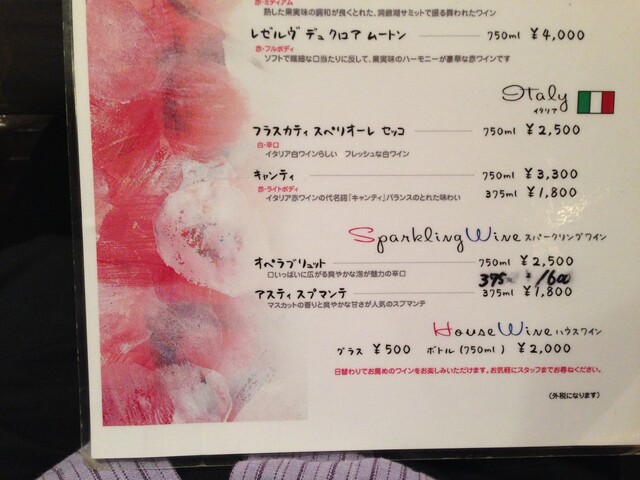 赤・ミディアム
熟した果実味の調和が良くとれた、洞爺湖サミットで振る舞われたワイン
レゼルヴ デュクロア ムートン 750ml ¥4,000
赤・フルボディ
ソフトで繊細な口当たりに反して、果実味のハーモニーが豪華な赤ワインです
Italy
イタリア
フラスカティ スペリオーレ セッコ 750ml ¥2,500
白・辛口
イタリア白ワインらしい フレッシュな白ワイン
キャンティ 750ml ¥3,300
赤・ライトボディ 375ml ¥1,800
イタリア赤ワインの代名詞「キャンティ」バランスのとれた味わい
Sparkling Wine スパークリングワイン
オペラブリュット 750ml ¥2,500
口いっぱいに広がる爽やかな泡が魅力の辛口
375
アスティ スプマンテ 375ml ¥1,800
マスカットの香りと爽やかな甘さが人気のスプマンテ
House Wine ハウスワイン
グラス ¥500 ボトル(750ml) ¥2,000
日替わりでお薦めのワインをお楽しみいただけます。お気軽にスタッフまでお尋ねください。
(外税になります)